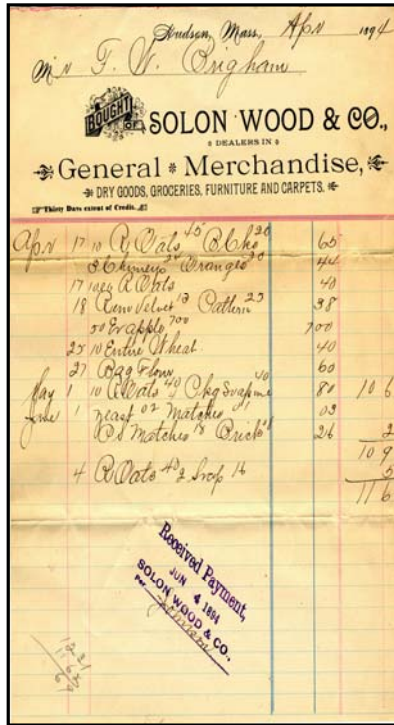 Hudson, Mass., Apr 1894
Mr F. W. Brigham
BOUGHT OF SOLON WOOD & CO.,
DEALERS IN
General Merchandise,
DRY GOODS, GROCERIES, FURNITURE AND CARPETS.
Thirty Days extent of Credit.
Apr 17 10 R Oats 45 20 65
3 Chimneys 24 Oranges 20 44
17 10 R Oats 40
18 Velvet 13 25 38
50 700 700
25 10 Entire Wheat 40
27 Bag Flour 60
May 1 10 R Oats 40 Pkg 40 80 10 6
June 1 Yeast 02 Matches 01 03
Matches 18 Brick 8 26 2
10 9
4 R Oats 40 2 Soap 16 5
11 6
Received Payment,
JUN 4 1894
SOLON WOOD & CO.,
Per
12 31
11 62
69